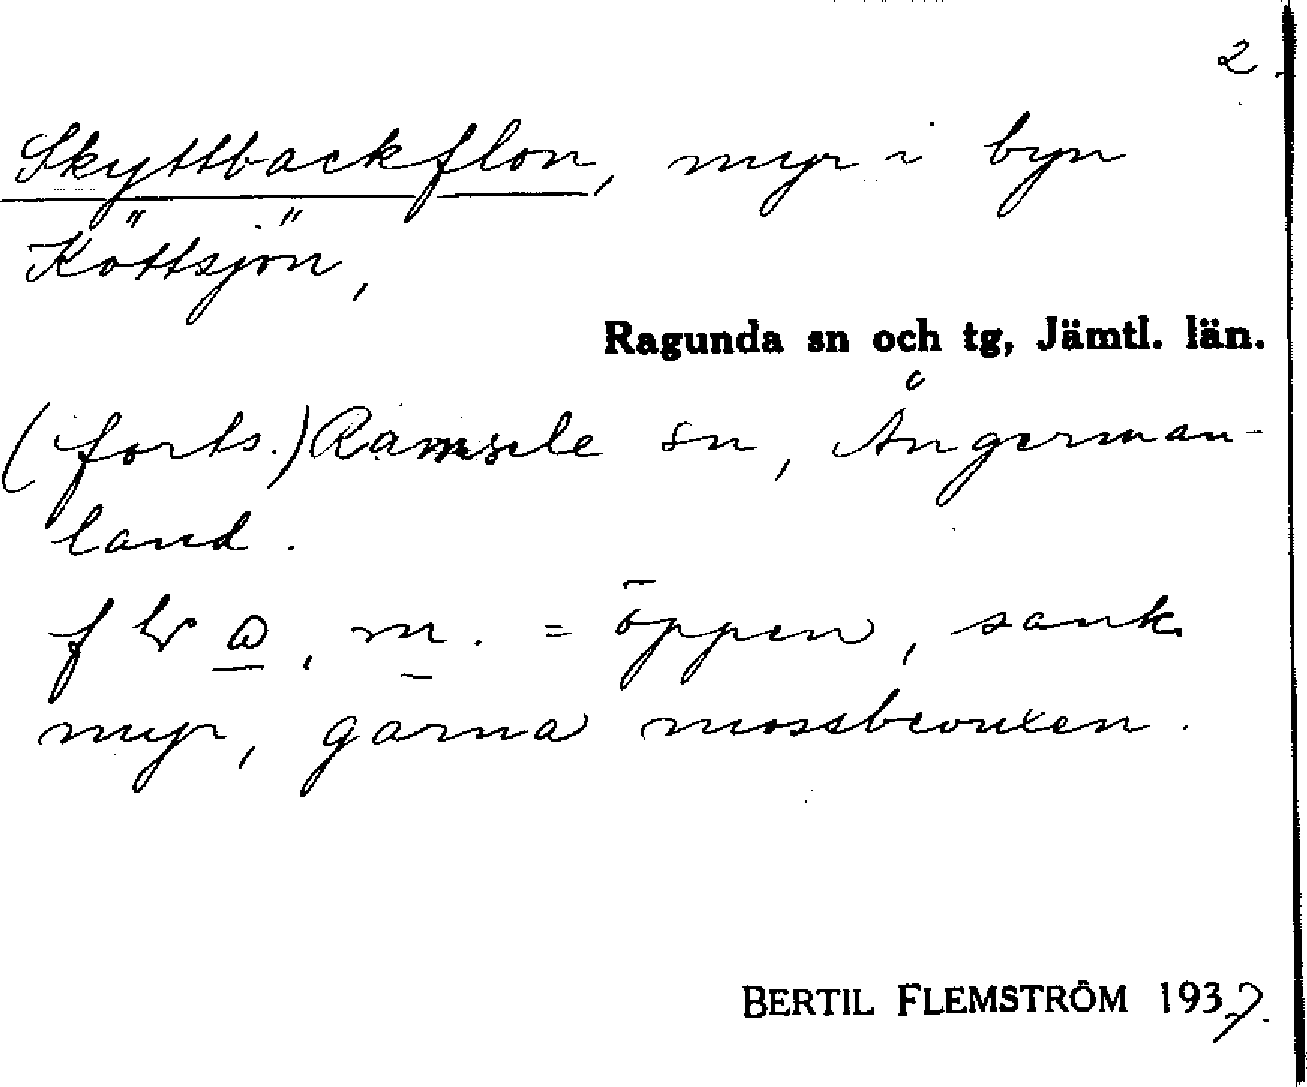 2
Skyttbackflon, myr i byn
Köttsjön,
Ragunda sn och tg, Jämtl. län.
(forts.) Ramsele sn, Ångerman-
land.
m. = öppen, sank
myr, gärna mossbevuxen.
BERTIL FLEMSTRÖM 1937.